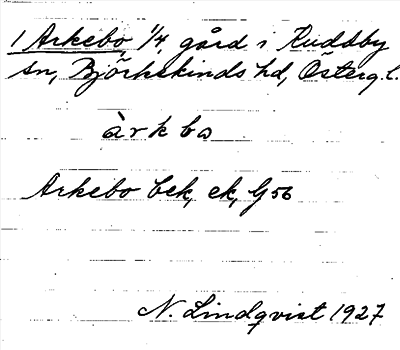 1 Arkebo, 1/4 gård i Ruddby
sn, Björkekinds hd, Österg. l.
àrkbo
Arkebo bek, ek, G 56
N. Lindqvist 1927